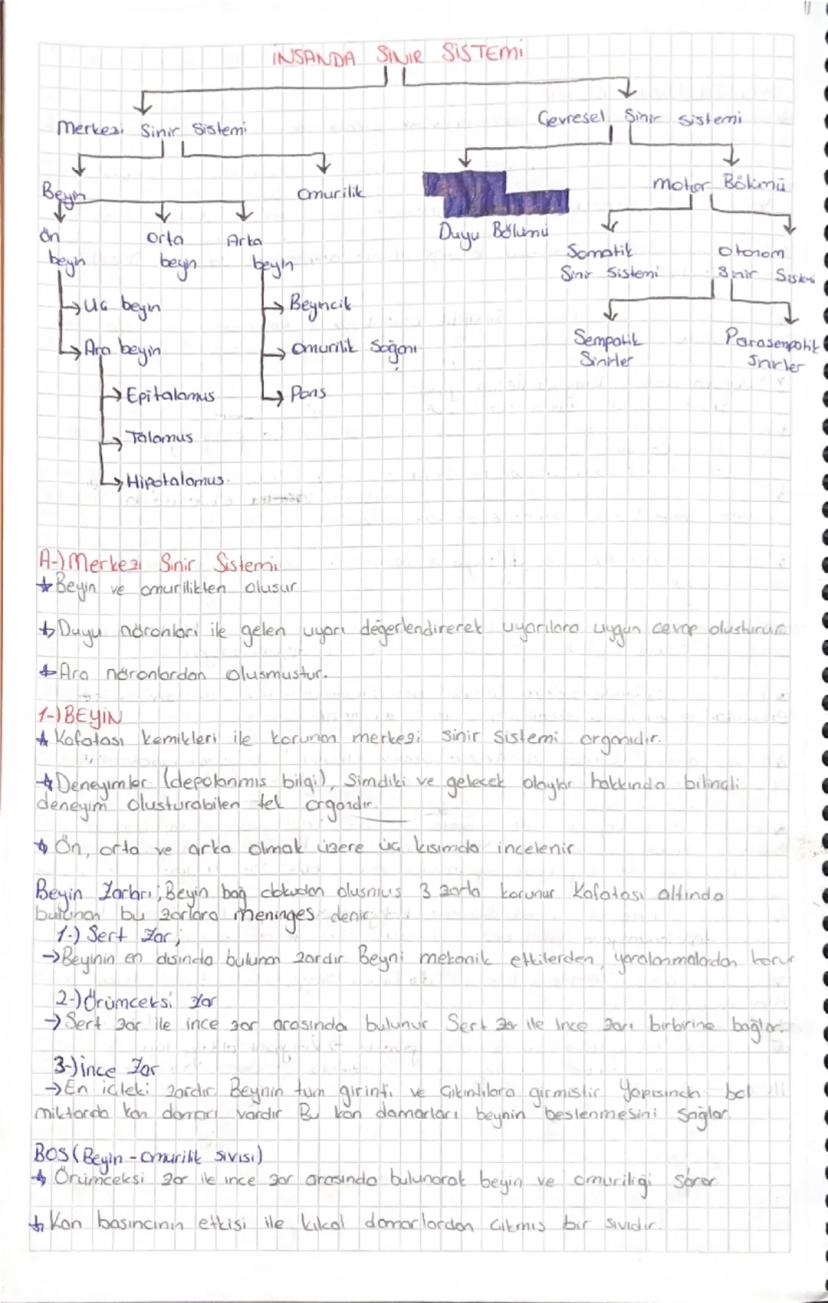 İNSANDA SİNİR SİSTEMİ
Merkezi Sinir Sistemi
Çevresel Sinir Sistemi
Beyin
Omurilik
Duyu Bölümü
Motor Bölümü
Ön beyin
Orta beyin
Arka beyin
Somatik Sinir Sistemi
Otonom Sinir Sistemi
Uç beyin
Ara beyin
Beyincik
Omurilik Soğanı
Pons
Sempatik Sinirler
Parasempatik Sinirler
Epitalamus
Talamus
Hipotalamus
A-) Merkezi Sinir Sistemi
Beyin ve omurilikten oluşur
Duyu nöronları ile gelen uyarı değerlendirerek uyarılara uygun cevap oluşturur
Ara nöronlardan oluşmuştur.
1-) BEYİN
Kafatası kemikleri ile korunan merkezi sinir sistemi organıdır.
Deneyimler (depolanmış bilgi), Şimdiki ve gelecek olaylar hakkında bilinçli
deneyim oluşturabilen tek organdır
Ön, orta ve arka olmak üzere üç kısımda incelenir
Beyin Zarları; Beyin bağ dokudan oluşmuş 3 zarla korunur Kafatası altında
bulunan bu zarlara meninges denir
1-) Sert Zar;
→ Beyinin en dışında bulunan zardır Beyni mekanik etkilerden, yaralanmalardan korur
2-) Örümceksi Zar
→ Sert zar ile ince zar arasında bulunur Sert zar ile ince zarı birbirine bağlar.
3-) İnce Zar
→ En içteki zardır. Beynin tüm girinti ve çıkıntılara girmiştir Yapısında bol
miktarda kan damarı vardır Bu kan damarları beynin beslenmesini sağlar
BOS (Beyin-omurilik sıvısı)
Örümceksi zar ile ince zar arasında bulunarak beyin ve omuriliği sarar
Kan basıncının etkisi ile kılcal damarlardan çıkmış bir sıvıdır.